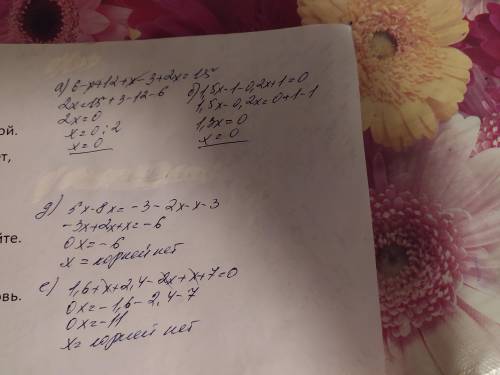 а) 6-x+12+x-3+2x=15
2x=15+3-12-6
2x=0
x=0:2
x=0
б) 1,5x-1-0,2x+1=0
1,5x-0,2x=0+1-1
1,3x=0
x=0
ой.
ет,
д) 5x-8x=-3-2x-x-3
-3x+2x+x=-6
0x=-6
x=корней нет
йте.
е) 1,6+x+2,4-2x+x+7=0
0x=-1,6-2,4-7
0x=-11
x=корней нет
овь.